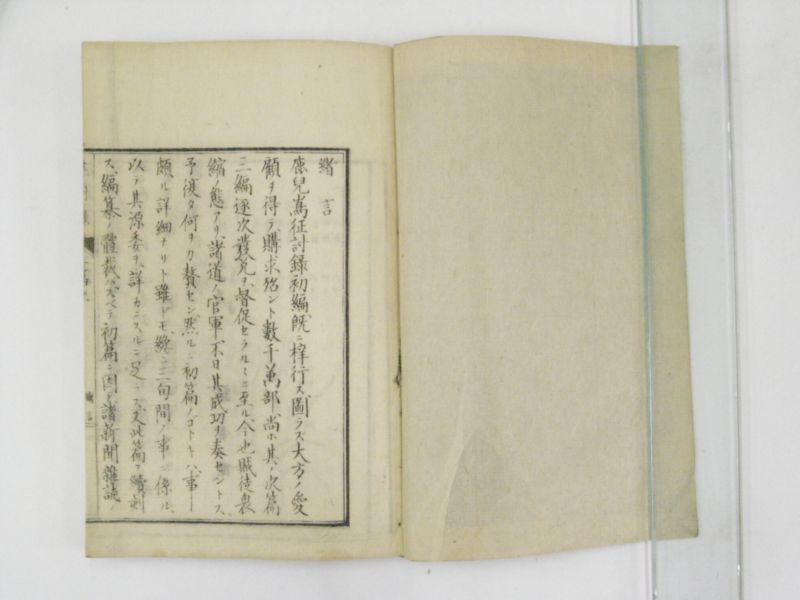 緒言
鹿児嶌征討録初編既ニ梓行ス圖ラズ大方ノ愛
顧ヲ得テ購求殆ント數千萬部尚ホ其ノ次篇
三編逐次發兌ヲ督促セラルヽニ至ル今也賊徒衰
縮ノ態アリ諸道ノ官軍不日其成功ヲ奏セントス
予復タ何ヲカ贅セン然ルニ初篇ノゴトキハ事
頗ル詳細ナリト雖ドモ纔ニ二旬間ノ事ニ係ル
以テ其源委ヲ詳カニスルニ足ラズ又此篇ヲ續刻
ス編纂ノ體裁ハスベテ初篇ニ因テ諸新聞雜誌ノ